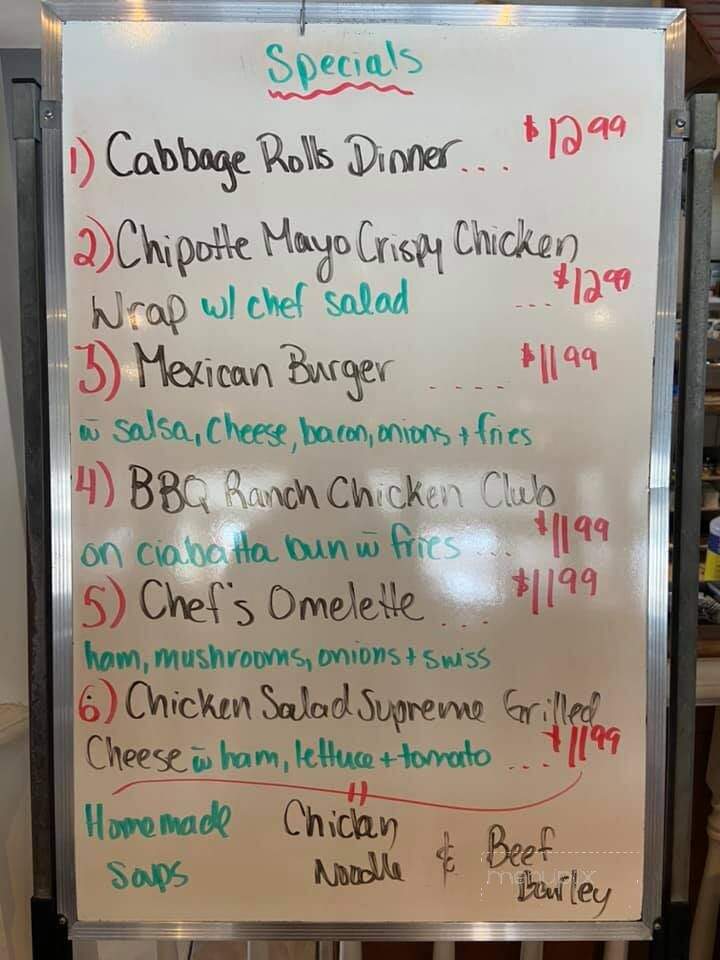 Specials
1) Cabbage Rolls Dinner.... $12.99
2) Chipotte Mayo Crispy Chicken
Wrap w/ chef salad ... $12.99
3) Mexican Burger ..... $11.99
w salsa, cheese, bacon, onions + fries
4) BBQ Ranch Chicken Club
on ciabatta bun w fries ... $11.99
5) Chef's Omelette .... $11.99
ham, mushrooms, onions + swiss
6) Chicken Salad Supreme Grilled
Cheese w ham, lettuce + tomato .... $11.99
Homemade Chicken & Beef
Soups Noodle Barley
menupix